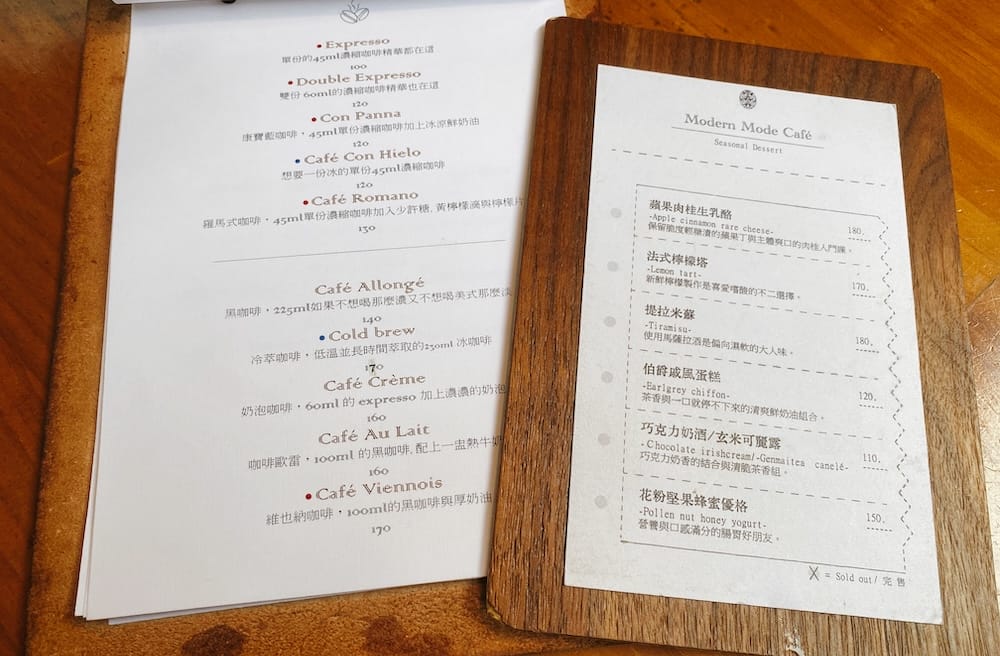 Expresso
單份的45ml濃縮咖啡精華都在這
100
Double Expresso
雙份 60ml的濃縮咖啡精華也在這
120
Con Panna
康寶藍咖啡，45ml單份濃縮咖啡加上冰涼鮮奶油
120
Café Con Hielo
想要一份冰的單份45ml濃縮咖啡
120
Café Romano
羅馬式咖啡，45ml單份濃縮咖啡加入少許糖, 黃檸檬滴與檸檬片
130
Café Allongé
黑咖啡，225ml如果不想喝那麼濃又不想喝美式那麼淡
140
Cold brew
冷萃咖啡，低溫並長時間萃取的230ml 冰咖啡
170
Café Crème
奶泡咖啡，60ml 的 expresso 加上濃濃的奶泡
160
Café Au Lait
咖啡歐雷，100ml 的黑咖啡, 配上一盅熱牛奶
160
Café Viennois
維也納咖啡，100ml的黑咖啡與厚奶油
170
Modern Mode Café
Seasonal Dessert
蘋果肉桂生乳酪
-Apple cinnamon rare cheese- 180.
保留脆度輕糖漬的蘋果丁與主體爽口的肉桂入門課。
法式檸檬塔
-Lemon tart- 170.
新鮮檸檬製作是喜愛嗜酸的不二選擇。
提拉米蘇
-Tiramisu- 180.
使用馬薩拉酒是偏向濕軟的大人味。
伯爵戚風蛋糕
-Earlgrey chiffon- 120.
茶香與一口就停不下來的清爽鮮奶油組合。
巧克力奶酒/玄米可麗露
-Chocolate irishcream/-Genmaitea canelé- 110.
巧克力奶香的結合與清脆茶香組。
花粉堅果蜂蜜優格
-Pollen nut honey yogurt- 150.
營養與口感滿分的腸胃好朋友。
X = Sold out/ 完 售